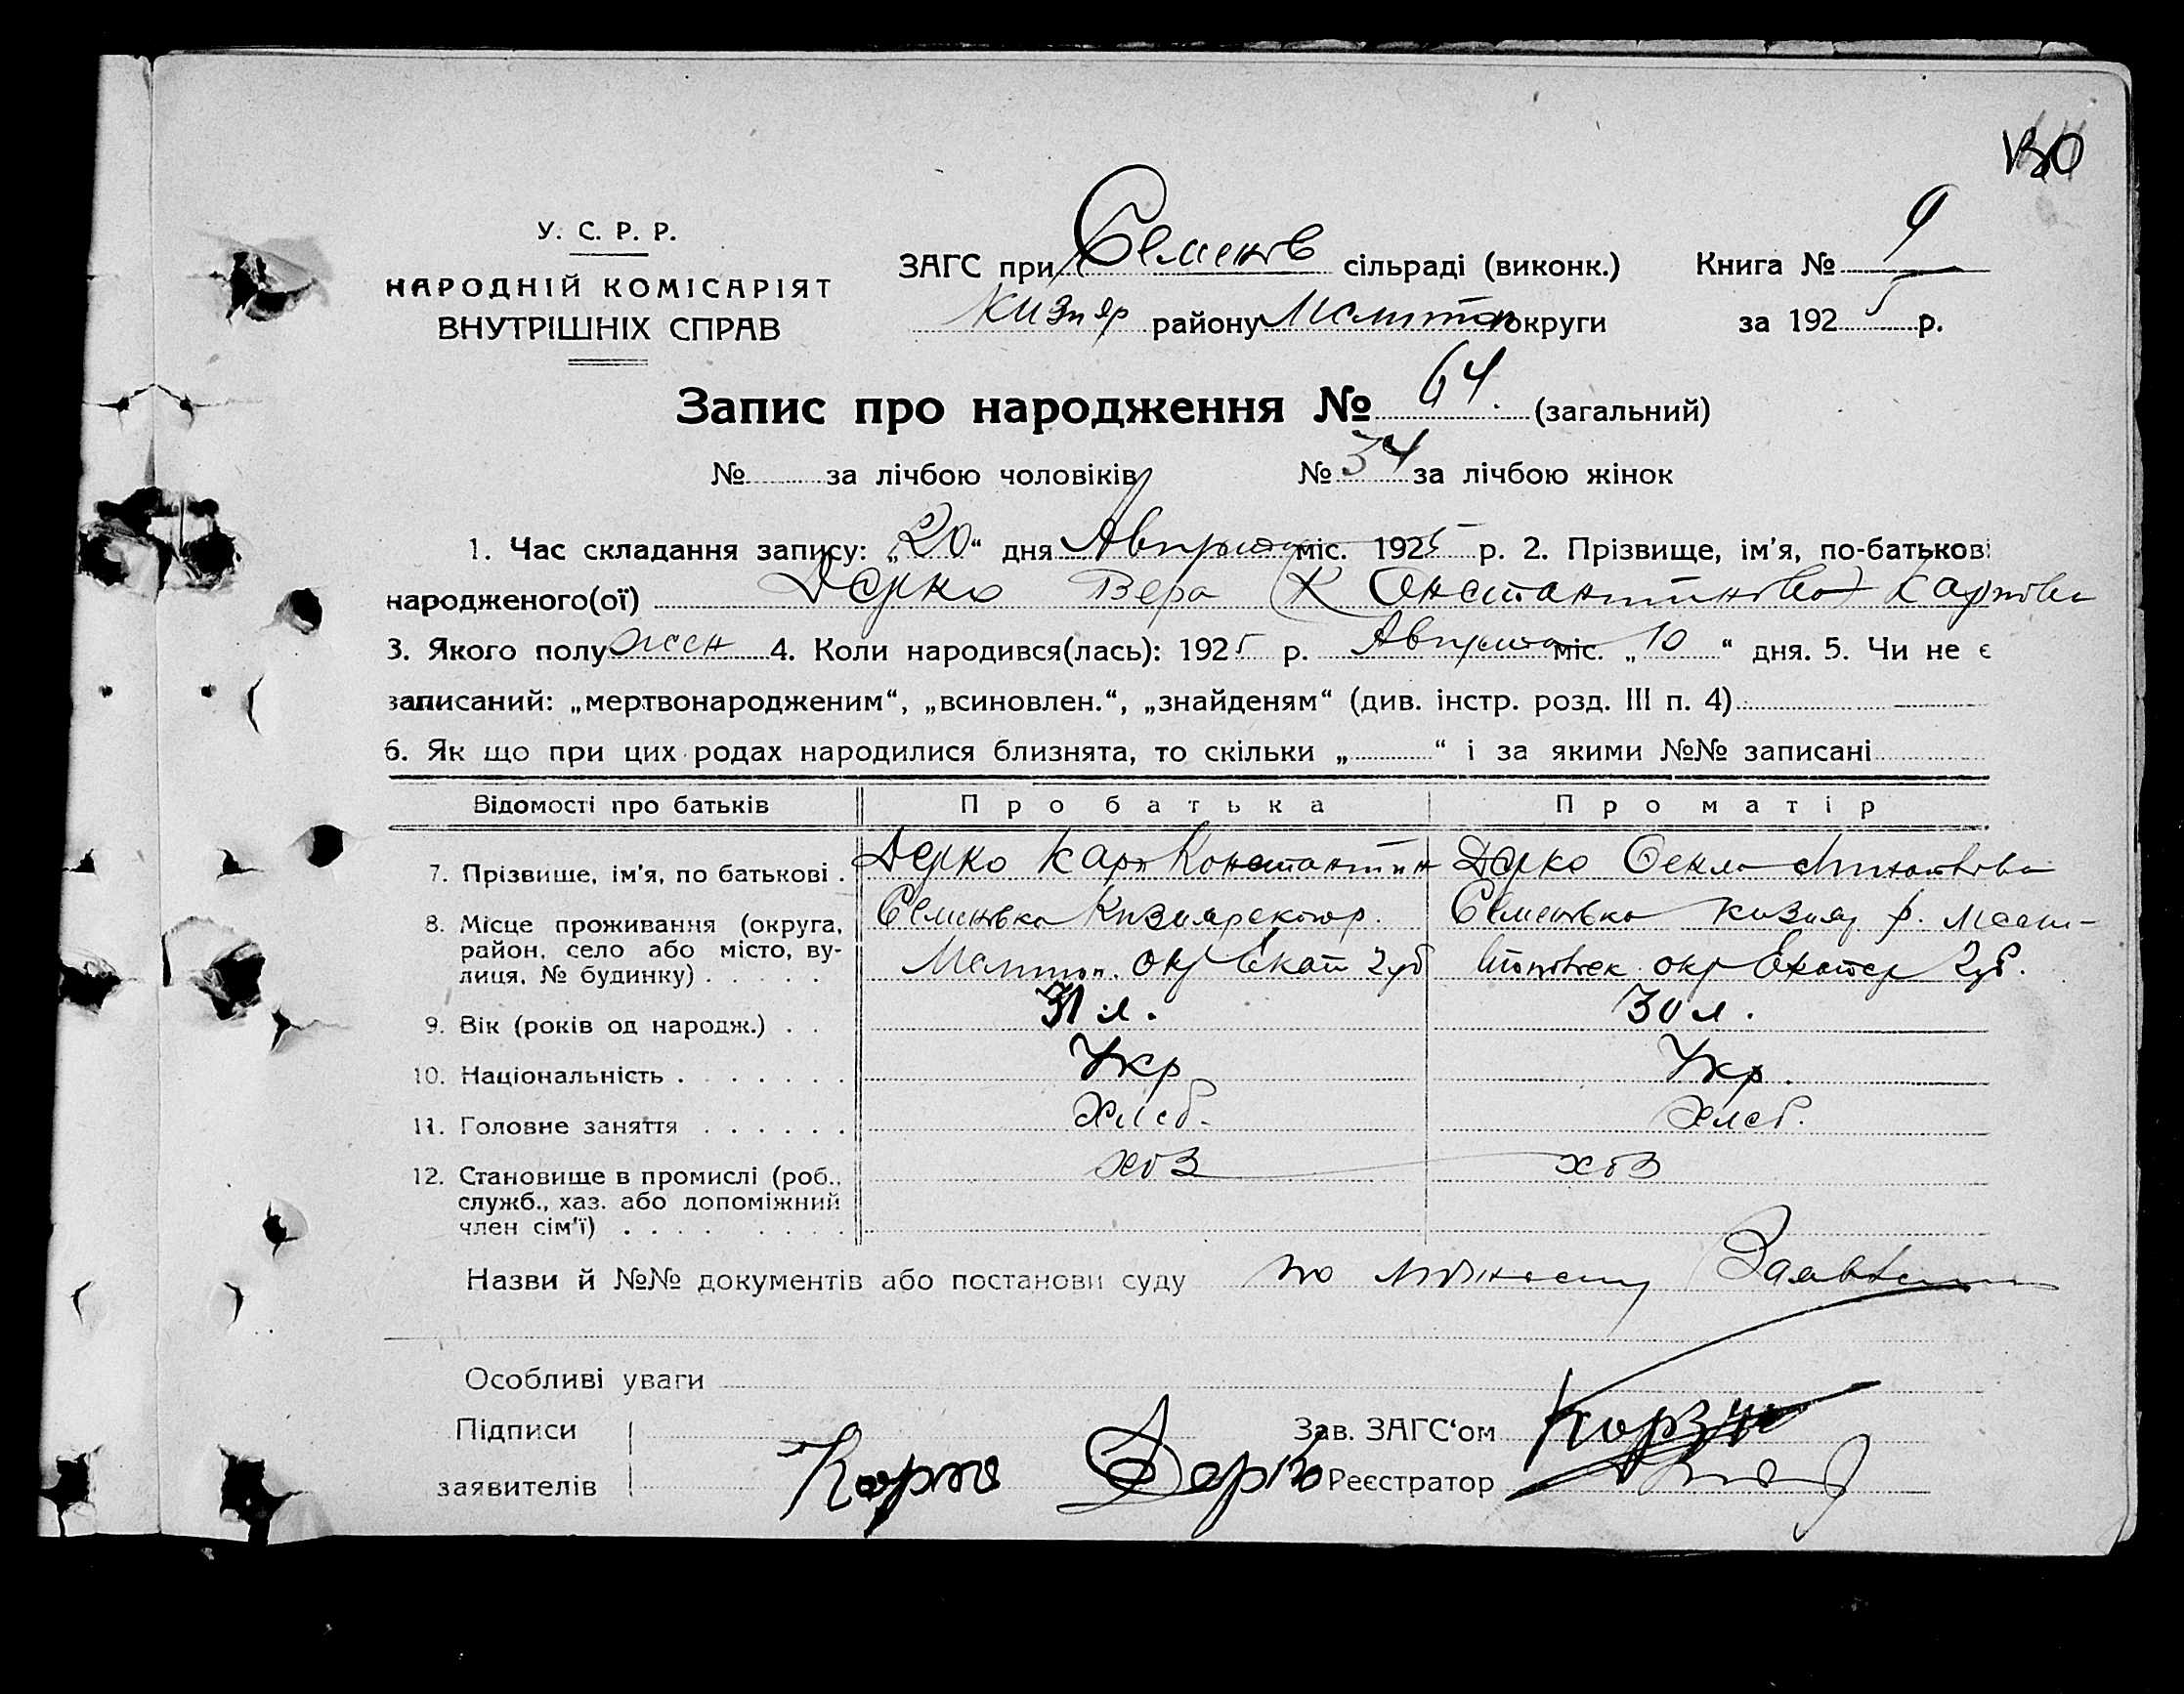 130
У. С. Р. Р.
НАРОДНІЙ КОМІСАРІЯТ
ВНУТРІШНІХ СПРАВ
ЗАГС при Семенов сільраді (виконк.) Книга № 9
Кизияр району Мелитоп округи за 1925 р.
Запис про народження № 64. (загальний)
№ за лічбою чоловіків № 34 за лічбою жінок
1. Час складання запису: „20“ дня Августа міс. 1925 р. 2. Прізвище, ім’я, по-батькові
народженого(ої) Дерко Вера (Константинова) Карпова
3. Якого полу жен 4. Коли народився(лась): 1925 р. Августа міс. „10“ дня. 5. Чи не є
записаний: „мертвонародженим“, „всиновлен.“, „знайденям“ (див. інстр. розд. III п. 4)
6. Як що при цих родах народилися близнята, то скільки „ “ і за якими №№ записані
Відомості про батьків Про батька Про матір
7. Прізвище, ім’я, по батькові . Дерко Карп Константин Дерко Фекла
8. Місце проживання (округа, Семеновка Кизиярск р. Семеновка Кизияр р. Мели-
район, село або місто, ву-
лиця, № будинку) . . . . . Мелитоп. окр Екат губ топольск окр Екатер губ.
9. Вік (років од народж.) . . 31 л. 30 л.
10. Національність . . . . . . . Укр Укр.
11. Головне заняття . . . . . . Хлеб. Хлеб.
12. Становище в промислі (роб., хоз хоз
служб., хаз. або допоміжний
член сім’ї) . . . . . . . .
Назви й №№ документів або постанови суду по личному Заявлению
Особливі уваги
Підписи Зав. ЗАГС‘ом
заявителів Карпо Дерко Реєстратор